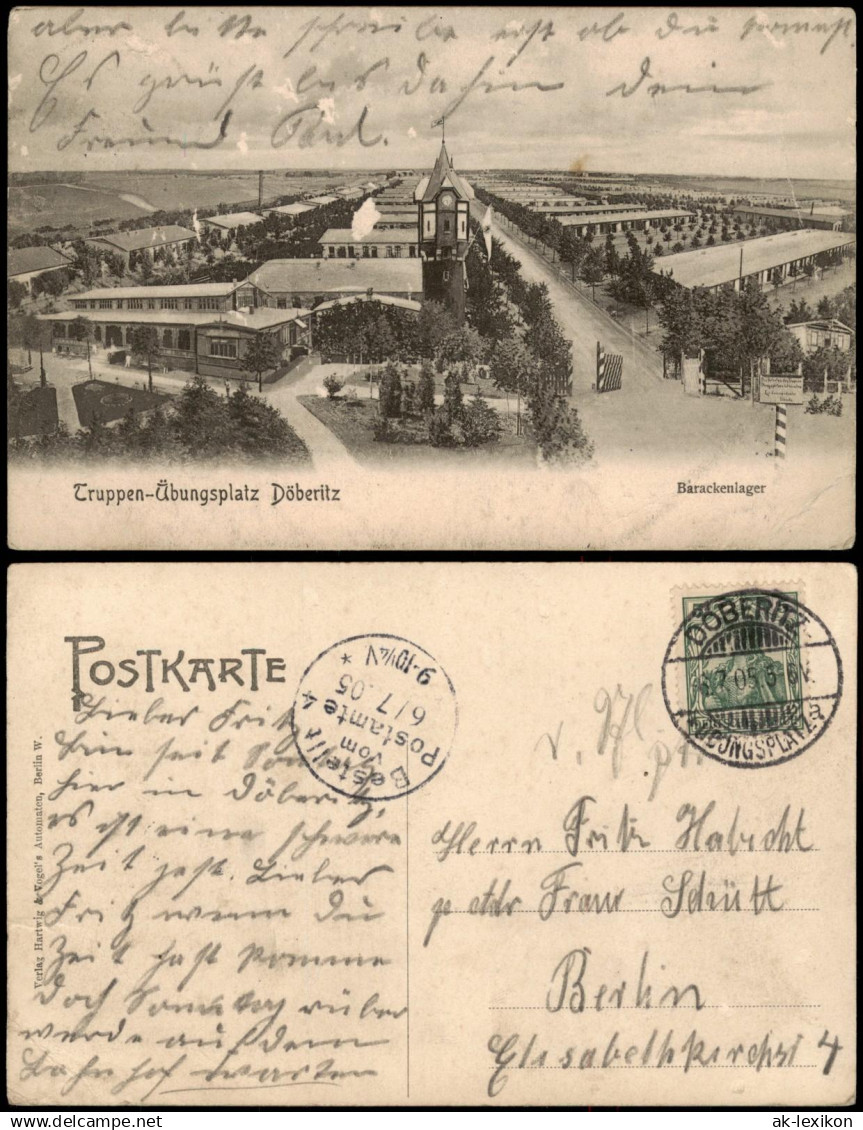 aber bitte schreibe erst ob du kommst.
Es grüßt bis dahin dein
Freund Paul.
Truppen-Übungsplatz Döberitz
Barackenlager
POSTKARTE
Bestellt
vom
Postamte 4
6/7.05
9-10¼V
*
DÖBERITZ
.7.05.
ÜBUNGSPLATZ
Verlag Hartwig & Vogel's Automaten, Berlin W.
Lieber Fritz
bin seit
hier in Döberitz,
es ist eine schwere
Zeit jetzt. Lieber
Fritz wenn du
Zeit hast komme
doch Sonntag rüber
werde auf dem
Bahnhof warten
Herrn Fritz Habicht
Frau Schütt
Berlin
Elisabethkirchst 4
ak-lexikon